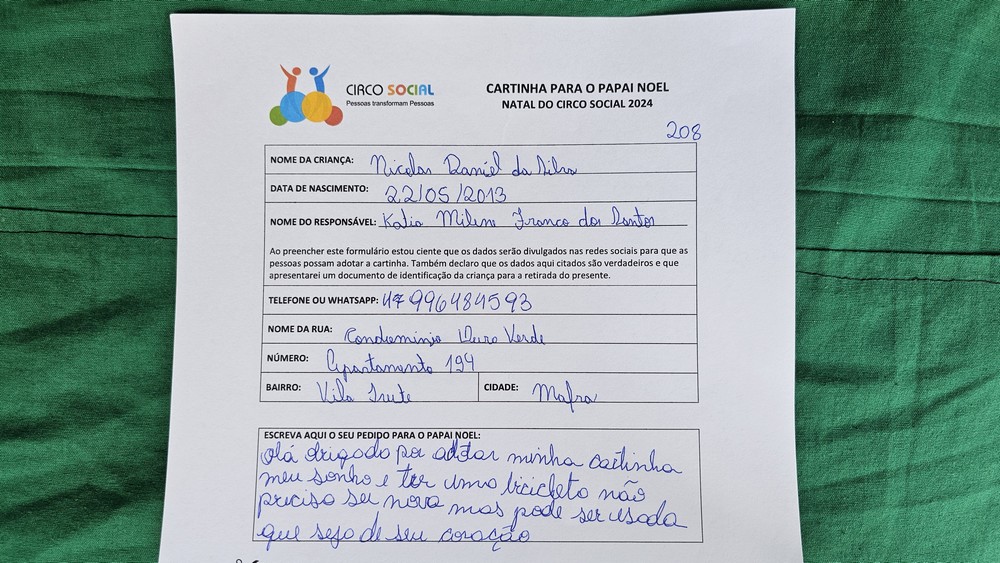 CIRCO SOCIAL
Pessoas transformam Pessoas
CARTINHA PARA O PAPAI NOEL
NATAL DO CIRCO SOCIAL 2024
208
NOME DA CRIANÇA: Nicolas Daniel da Silva
DATA DE NASCIMENTO: 22/05/2013
NOME DO RESPONSÁVEL: Katia Milene Franco dos Santos
Ao preencher este formulário estou ciente que os dados serão divulgados nas redes sociais para que as
pessoas possam adotar a cartinha. Também declaro que os dados aqui citados são verdadeiros e que
apresentarei um documento de identificação da criança para a retirada do presente.
TELEFONE OU WHATSAPP: 47996484593
NOME DA RUA: Condominio Ouro Verde
NÚMERO: Apartamento 194
BAIRRO: Vila Irute CIDADE: Mafra
ESCREVA AQUI O SEU PEDIDO PARA O PAPAI NOEL:
Olá obrigado por adotar minha caitinha
meu sonho e ter uma bicicleta não
precisa ser nova mas pode ser usada
que seja de seu coração